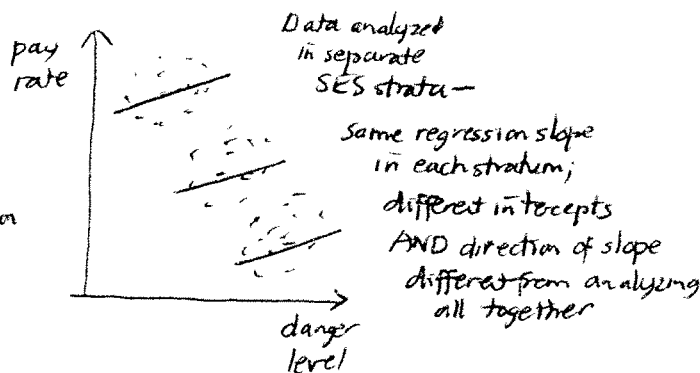 pay
rate
Data analyzed
in separate
SES strata —
same regression slope
in each stratum;
different intercepts
AND direction of slope
different from analyzing
all together
danger
level